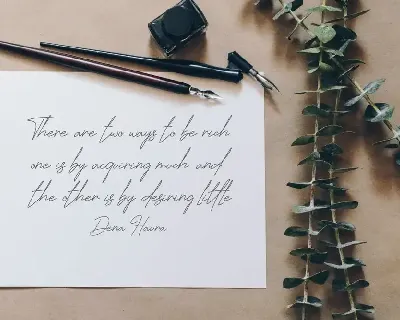 There are two ways to be rich
one is by acquiring much and
the other is by desiring little
Dena Haura